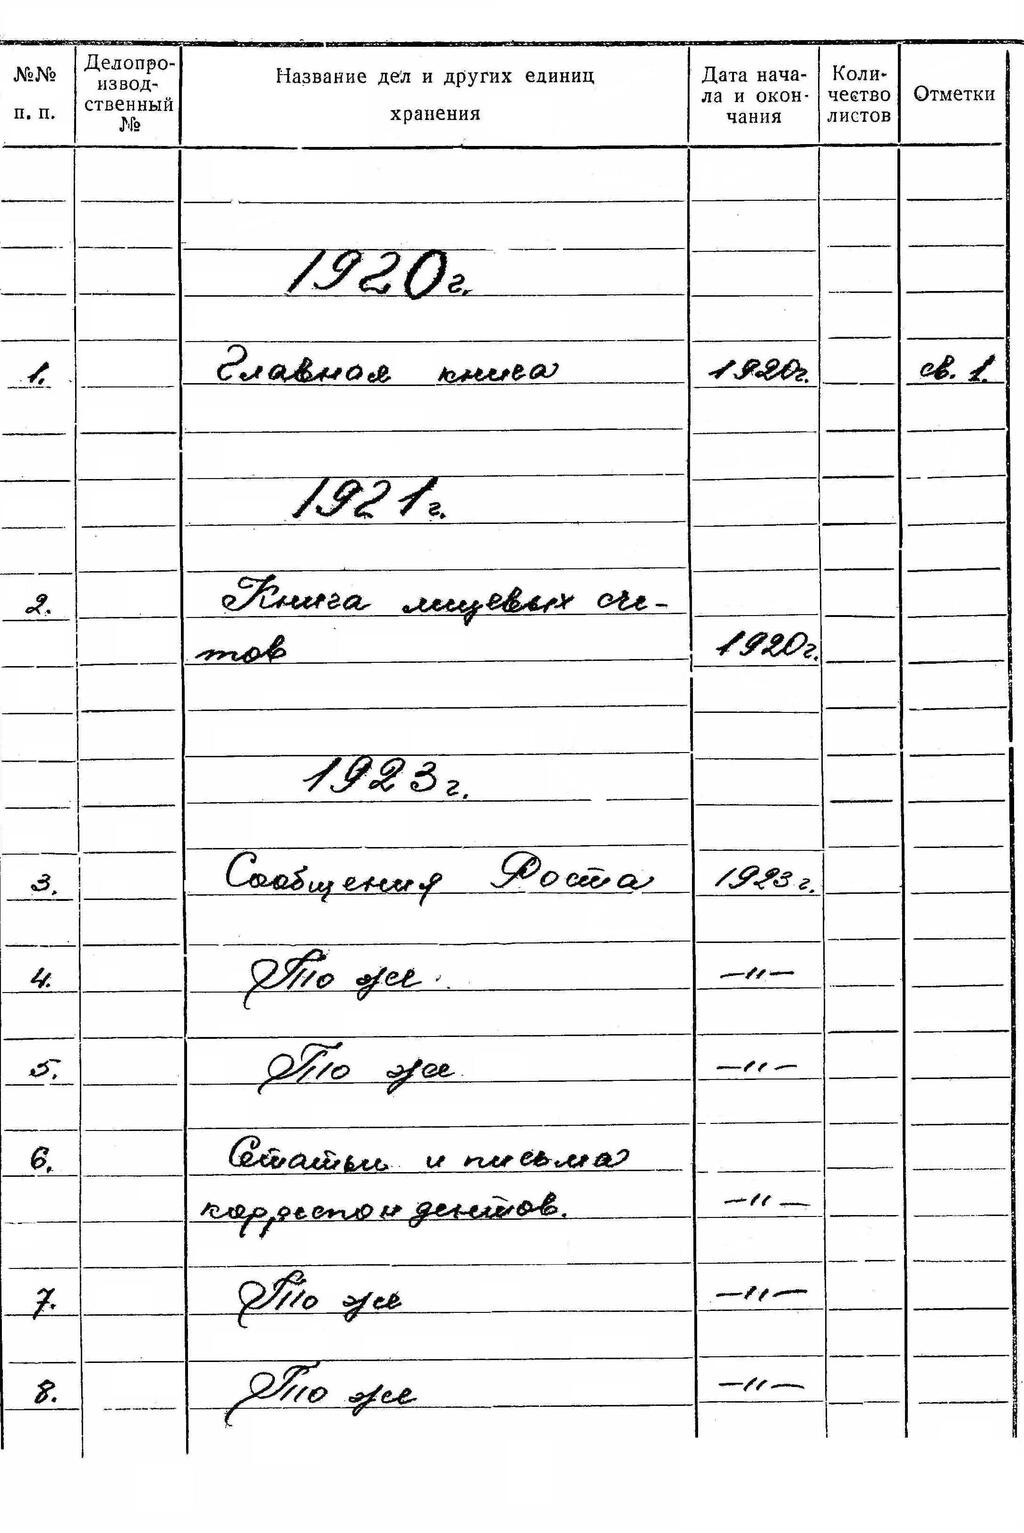 №№ п. п. Делопро-извод-ственный № Название дел и других единиц хранения Дата нача-ла и окон-чания Коли-чество листов Отметки
1920 г.
1. Главная книга 1920 г. св. 1.
1921 г.
2. Книга лицевых сче-
тов 1920 г.
1923 г.
3. Сообщения Роста 1923 г.
4. То же —"—
5. То же —"—
6. Статьи и письма
корреспондентов. —"—
7. То же —"—
8. То же —"—